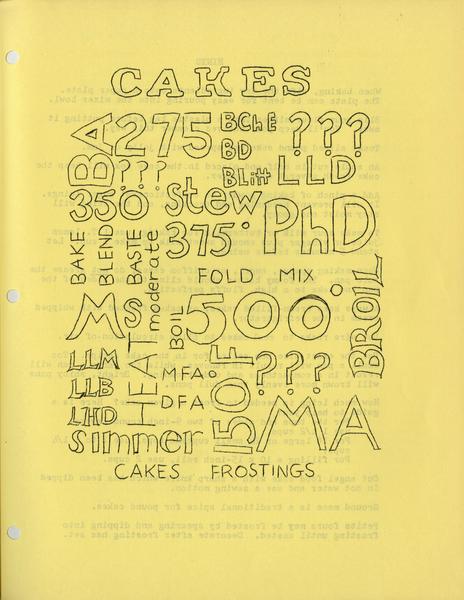 CAKES
BA
275
BChE
BD
BLitt
???
LLD
???
350
Stew
PhD
375°
BAKE
BLEND
BASTE
moderate
FOLD MIX
MS
BOIL
500°
BROIL
LLM
LLB
LHD
HEAT
MFA
DFA
150F
???
MA
Simmer
CAKES FROSTINGS